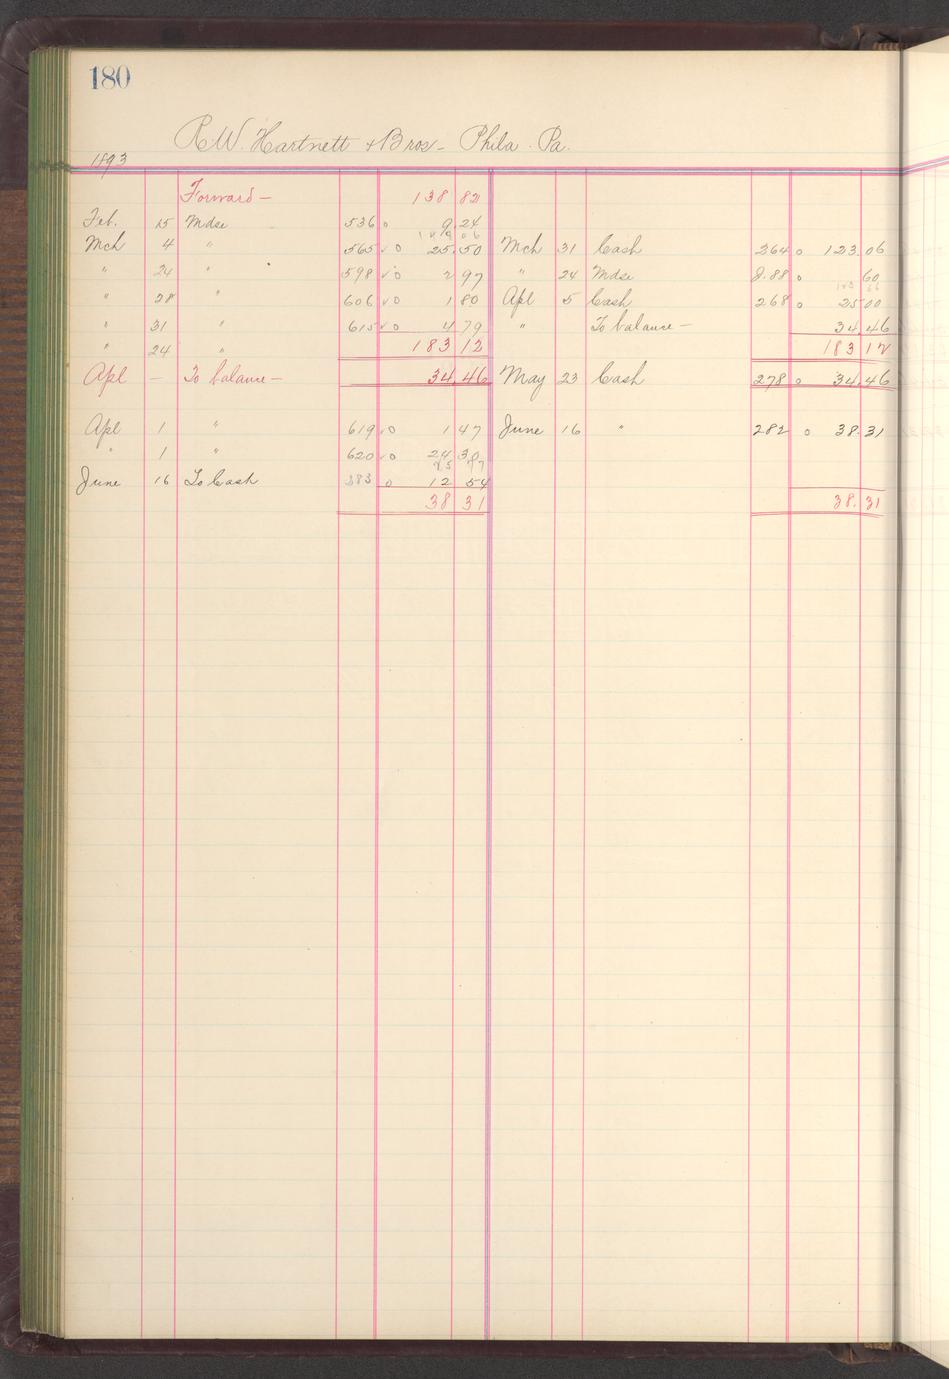 180
R.W. Hartnett & Bros - Phila. Pa.
1893
Forward - 138 82
Feb. 15 Mdse 536 o 9.24
Mch 4 " 565 ✓ o 25.50 Mch 31 Cash 264 o 123.06
" 24 " 598 ✓ o 2 97 " 24 Mdse J.88 o 60
" 28 " 606 ✓ o 1 80 Apl 5 Cash 268 o 25 00
" 31 " 615 ✓ o 4 79 " To balance - 34.46
" 24 " 183 12 183 12
Apl - To balance - 34.46 May 23 Cash 278 o 34.46
Apl 1 " 619 ✓ o 1 47 June 16 " 282 o 38.31
" 1 " 620 ✓ o 24 30
25 77
June 16 To Cash 283 o 12 54
38 31 38.31